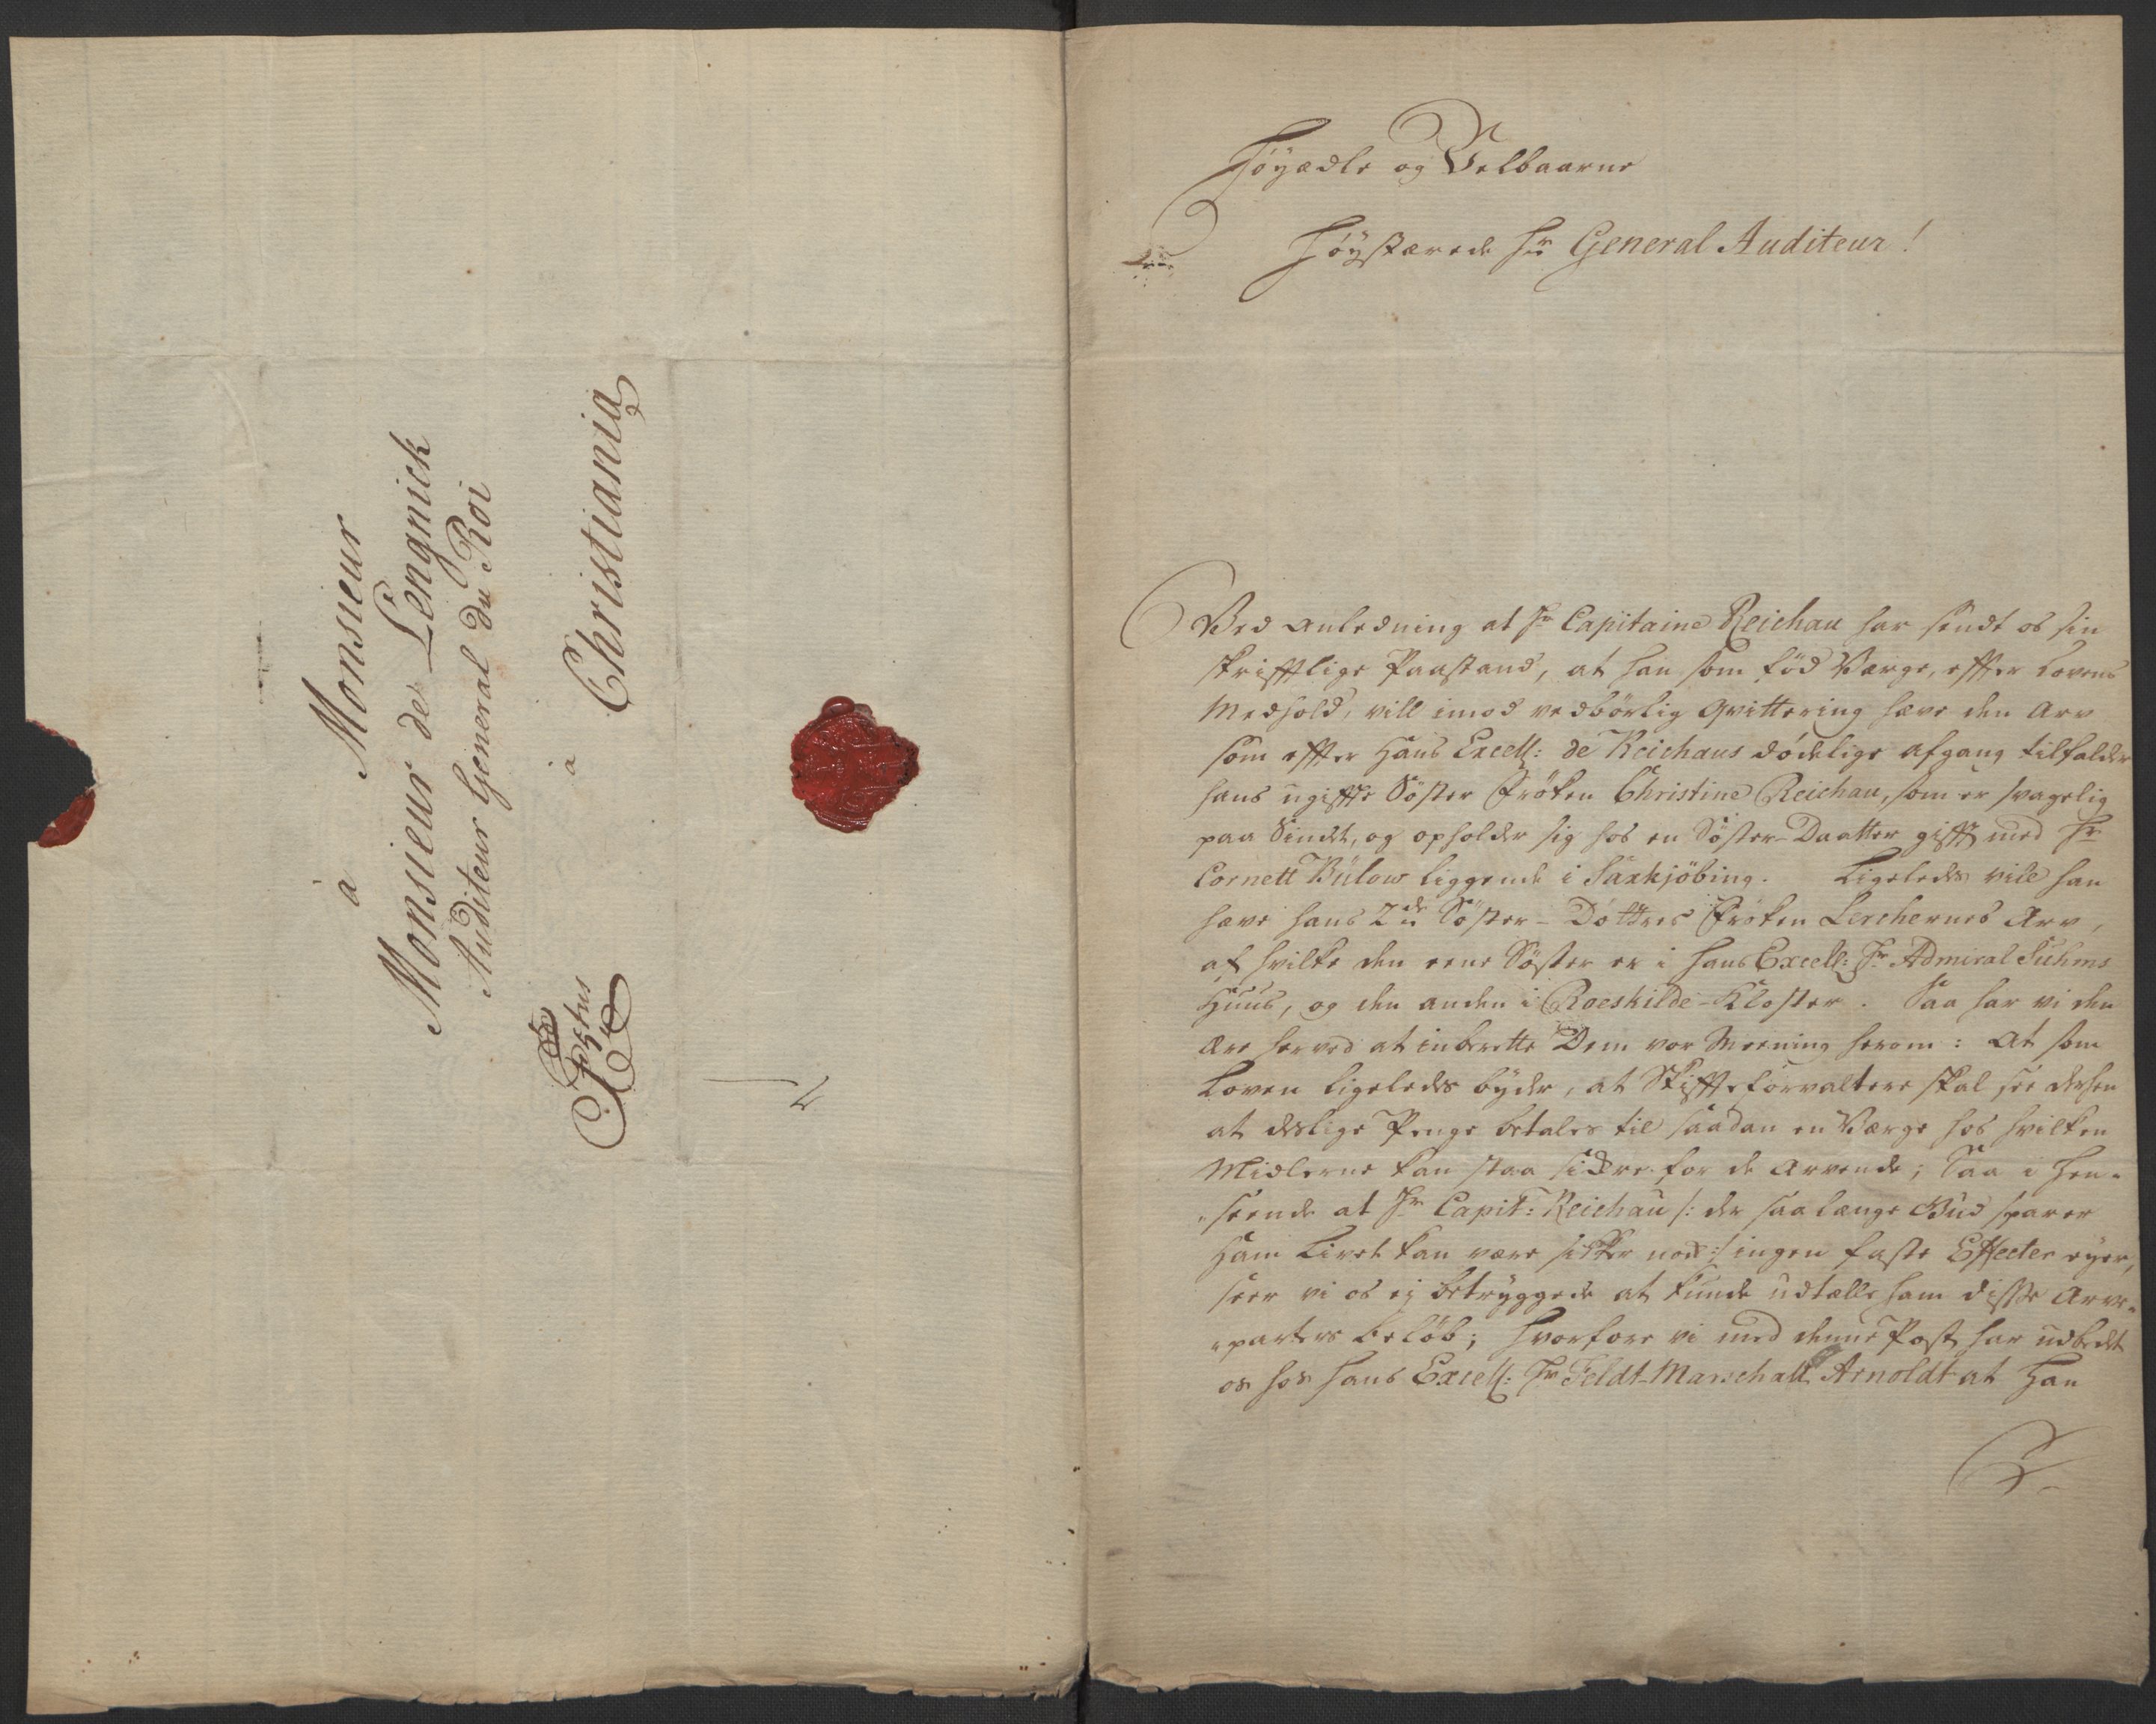 à Monsieur
Monsieur de Lengnick
Auditeur General du Roi
à Christiania
Høyædle og Velbaarne
Høystærede Hr General Auditeur!
Ved anledning at Hr Capitaine Reichau har sendt os sin
skrifftlige Paastand, at han som fød Værge, effter Lovens
Medhold, vill imod vedbørlig Qvittering hæve den Arv
som effter Hans Excell: de Reichaus dödelige afgang tilfalder
hans ugiffte Söster Fröken Christine Reichau, som er svagelig
paa Sindet, og opholder sig hos en Söster-Daatter gifft med Hr
Cornett Bülow liggende i Saxkjöbing. Ligeledes vill han
hæve hans 2de Söster-Döttres Fröken Lerchernes Arv,
af hvilke den eene Söster er i hans Excell: Hr Admiral Suhms
Huus, og den anden i Roeskilde-Kloster. Saa har vi den
Ære herved at inberette Dem vor Meening herom: At som
Loven ligeledes byder, at Skiffteforvaltere skal see derhen
at deslige Penge betales til saadan en Værge hos hvilken
Midlerne kan staa sickre for de Arvende; Saa i Hen-
-seende at Hr Capit: Reichau /: der saa længe Gud sparer
Ham Livet kan være sikker nok :/ ingen faste Effecter eyer,
seer vi os ej betryggede at kunde udtælle ham disse Arve-
-parters beløb; hvorfore vi med denne Post har udbedet
os hos hans Excell: Hr Feldt-Marschall Arnoldt at Han